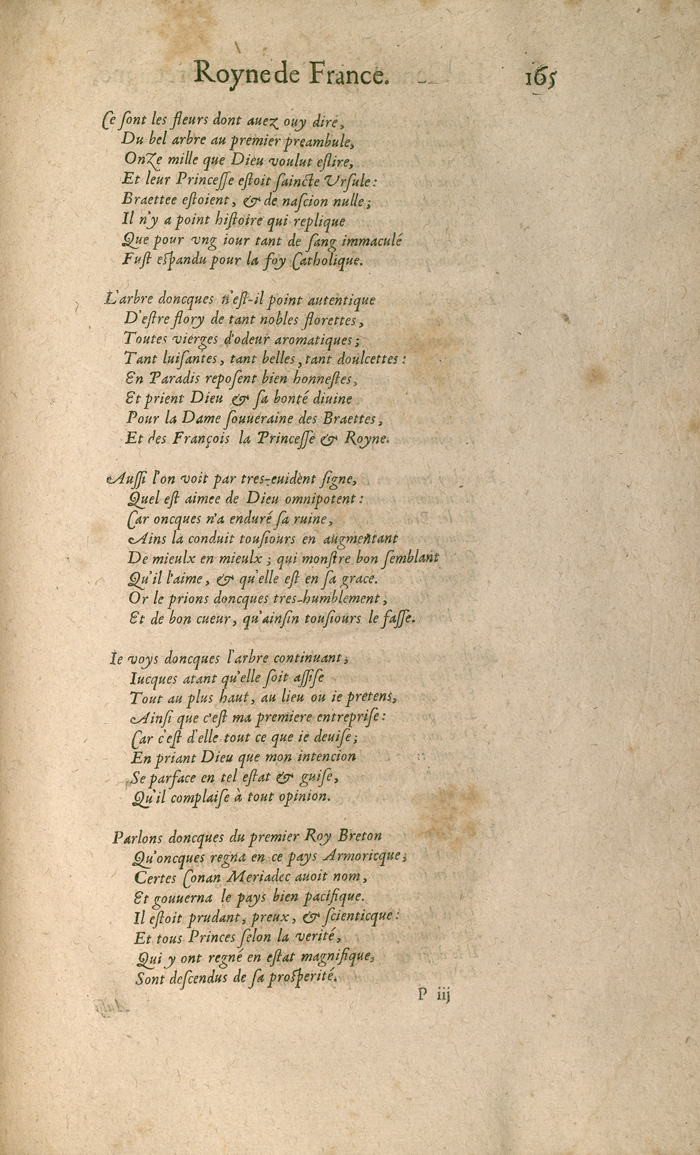 Royne de France. 165
Ce ſont les fleurs dont auez ouy dire,
Du bel arbre au premier preambule,
OnZe mille que Dieu voulut eſlire,
Et leur Princeſſe eſtoit ſaincte Vrſule:
Braettee eſtoient, & de naſcion nulle;
Il n'y a point hiſtoire qui replique
Que pour vng iour tant de ſang immaculé
Fuſt eſpandu pour la foy Catholique.
L'arbre doncques n'eſt-il point autentique
D'eſtre flory de tant nobles florettes,
Toutes vierges d'odeur aromatiques;
Tant luiſantes, tant belles, tant doulcettes:
En Paradis repoſent bien honneſtes,
Et prient Dieu & ſa bonté diuine
Pour la Dame ſouueraine des Braettes,
Et des François la Princeſſe & Royne.
Auſſi l'on voit par tres-euident ſigne,
Quel eſt aimee de Dieu omnipotent:
Car oncques n'a enduré ſa ruine,
Ains la conduit touſiours en augmentant
De mieulx en mieulx; qui monſtre bon ſemblant
Qu'il l'aime, & qu'elle eſt en ſa grace.
Or le prions doncques tres-humblement,
Et de bon cueur, qu'ainſin touſiours le faſſe.
Ie voys doncques l'arbre continuant,
Iucques atant qu'elle ſoit aſſiſe
Tout au plus haut, au lieu ou ie pretens,
Ainſi que c'eſt ma premiere entrepriſe:
Car c'eſt d'elle tout ce que ie deuiſe;
En priant Dieu que mon intencion
Se parface en tel eſtat & guiſe,
Qu'il complaiſe à tout opinion.
Parlons doncques du premier Roy Breton
Qu'oncques regna en ce pays Armoricque;
Certes Conan Meriadec auoit nom,
Et gouuerna le pays bien pacifique.
Il eſtoit prudant, preux, & ſcienticque:
Et tous Princes ſelon la verité,
Qui y ont regné en eſtat magnifique,
Sont deſcendus de ſa proſperité.
P iij